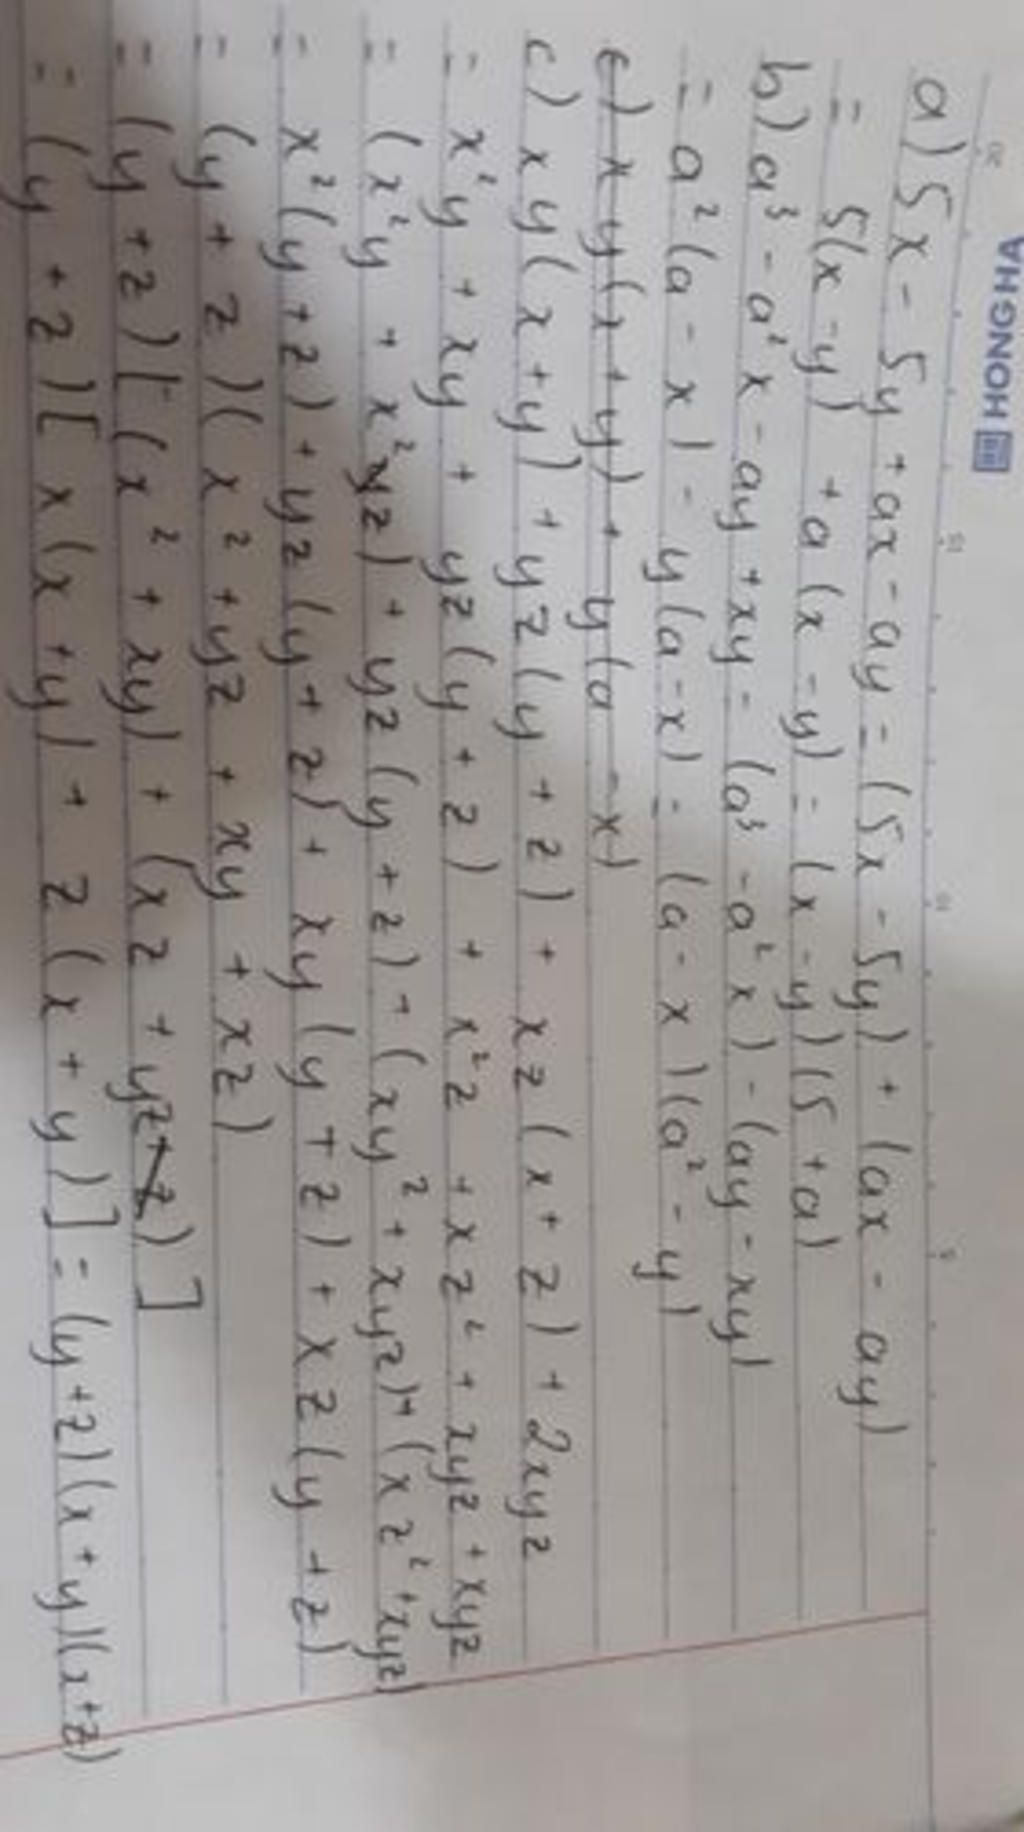 HONGHA
a) 5x - 5y + ax - ay = (5x - 5y) + (ax - ay)
= 5(x - y) + a(x - y) = (x - y)(5 + a)
b) a³ - a²x - ay + xy = (a³ - a²x) - (ay - xy)
= a²(a - x) - y(a - x) = (a - x)(a² - y)
c) xy(x + y) + yz(y + z) + xz(x + z) + 2xyz
= x²y + xy + yz(y + z) + x²z + xz² + xyz + xyz
= (x²y + x²yz) + yz(y + z) + (xy² + xyz) + (xz² + xyz)
= x²(y + z) + yz(y + z) + xy(y + z) + xz(y + z)
= (y + z)(x² + yz + xy + xz)
= (y + z)[(x² + xy) + (xz + yz)]
= (y + z)[x(x + y) + z(x + y)] = (y + z)(x + y)(x + z)